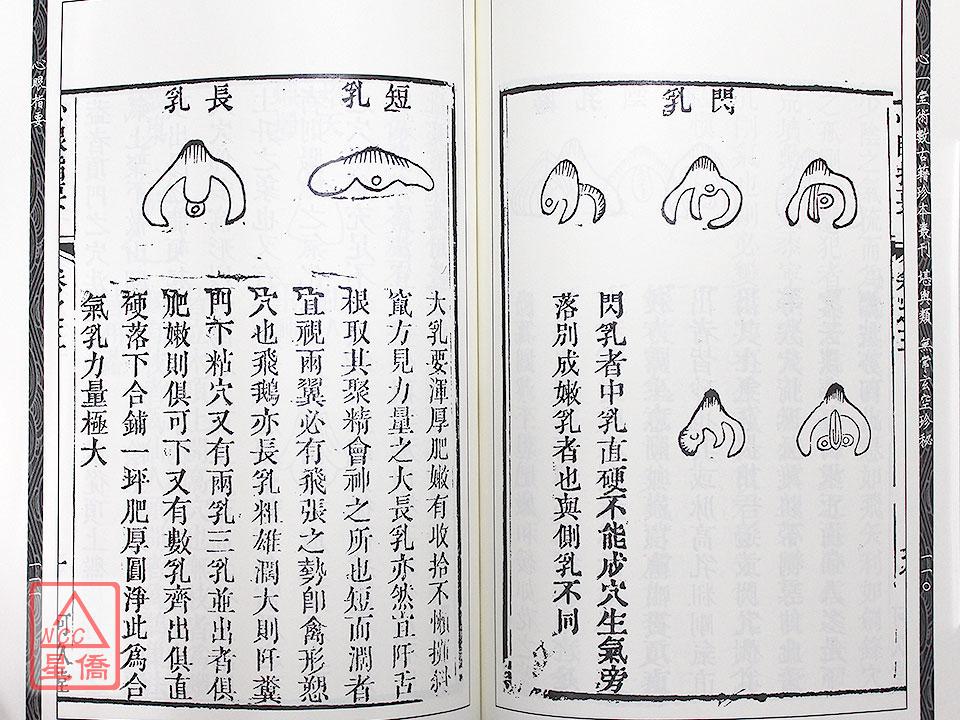 心一堂術數古籍珍本叢刊 堪輿類 無常派玄空珍秘
一一〇
閃乳
閃乳者中乳直硬不能成穴生氣旁
落別成嫩乳者也與側乳不同
短乳
長乳
大乳要渾厚肥嫩有收拾不懶擁斜
竄方見力量之大長乳亦然宜阡舌
根取其聚精會神之所也短而濶者
宜視兩翼必有飛張之勢卽禽形
穴也飛鵝亦長乳粗雄濶大則阡糞
門下粘穴又有兩乳三乳並出者俱
肥嫩則俱可下又有數乳齊出俱直
硬落下合鋪一坪肥厚圓淨此為合
氣乳力量極大
心眼指要
一一一
WCC
星僑